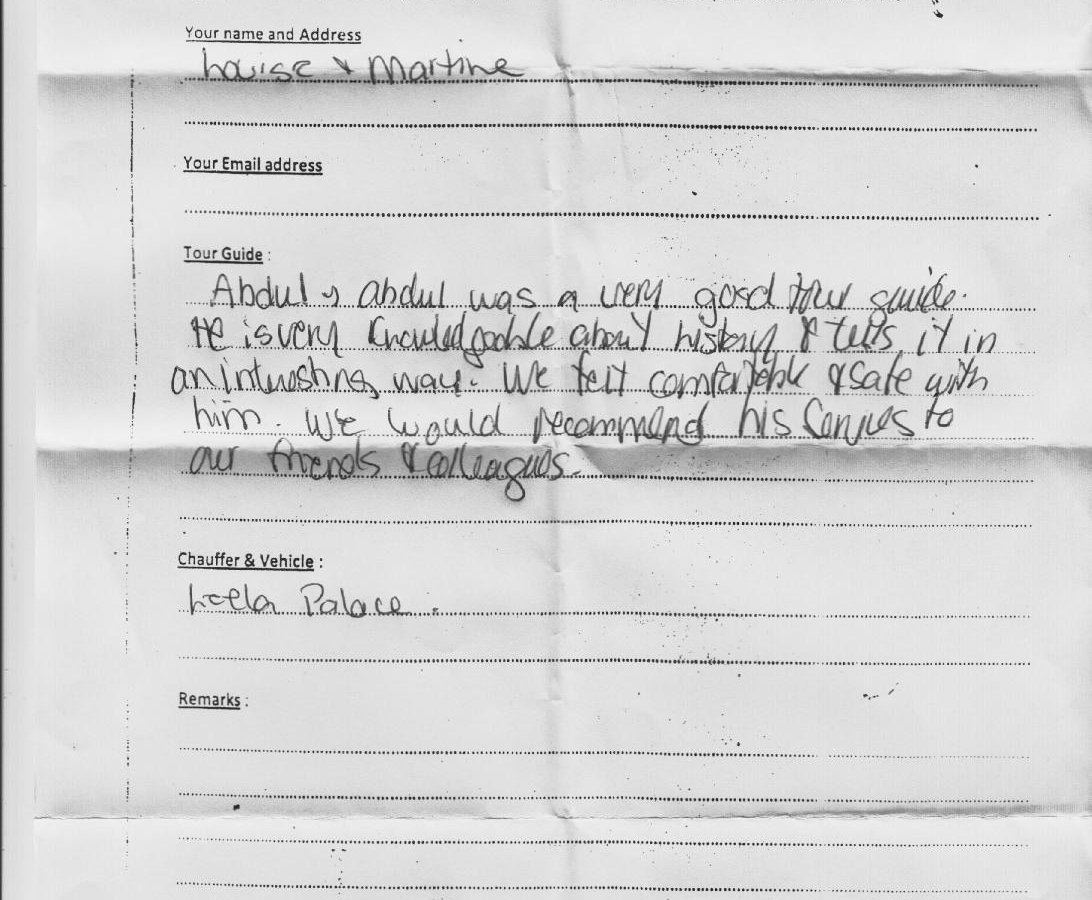 Your name and Address
Louise & Martine
Your Email address
Tour Guide :
Abdul, abdul was a very good tour guide.
He is very knowledgeable about history & tells it in
an interesting way. We felt comfortable & safe with
him. We would recommend his services to
our friends & colleagues.
Chauffer & Vehicle :
Leela Palace.
Remarks :